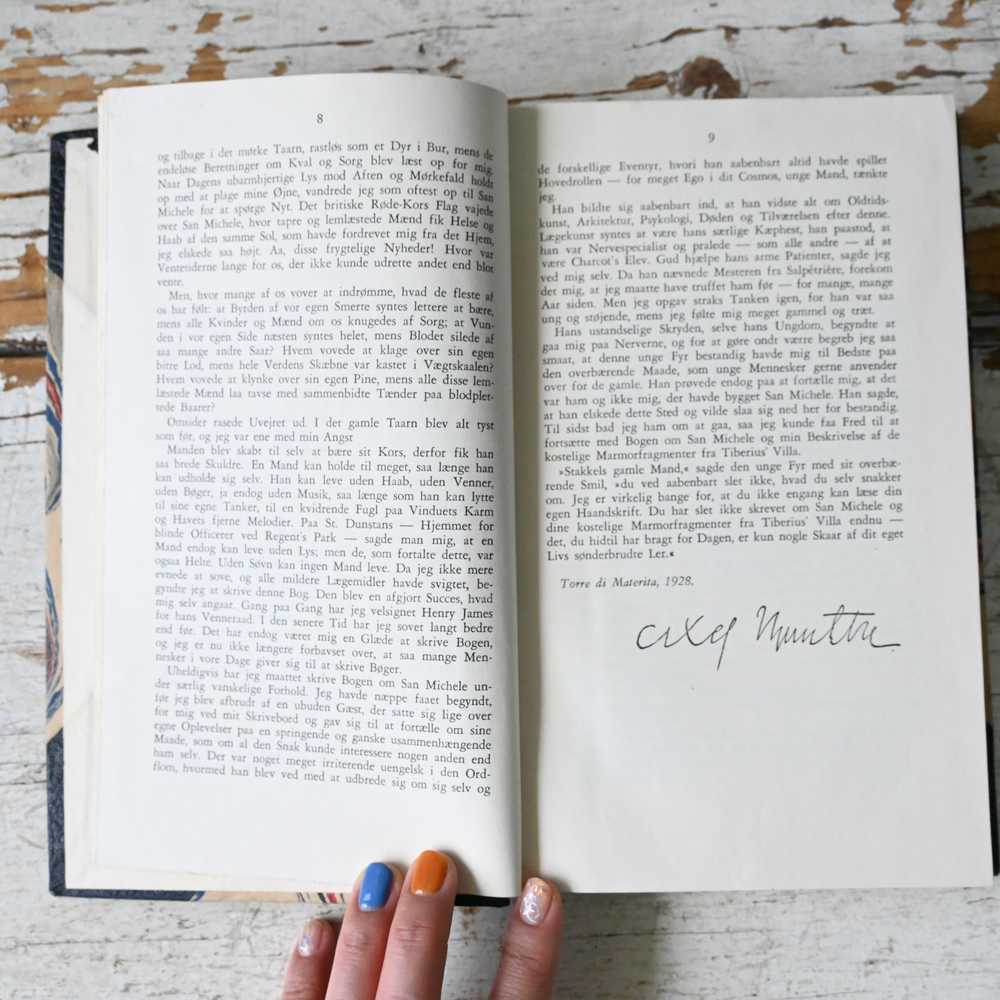 8
og tilbage i det mørke Taarn, rastløs som et Dyr i Bur, mens de
endeløse Beretninger om Kval og Sorg blev læst op for mig.
Naar Dagens ubarmhjertige Lys mod Aften og Mørkefald holdt
op med at plage mine Øjne, vandrede jeg som oftest op til San
Michele for at spørge Nyt. Det britiske Røde-Kors Flag vajede
over San Michele, hvor tapre og lemlæstede Mænd fik Helse og
Haab af den samme Sol, som havde fordrevet mig fra det Hjem,
jeg elskede saa højt. Aa, disse frygtelige Nyheder! Hvor var
Ventetiderne lange for os, der ikke kunde udrette andet end blot
vente.
Men, hvor mange af os vover at indrømme, hvad de fleste af
os har følt: at Byrden af vor egen Smerte syntes lettere at bære,
mens alle Kvinder og Mænd om os knugedes af Sorg; at Vun-
den i vor egen Side næsten syntes helet, mens Blodet silede af
saa mange andre Saar? Hvem vovede at klage over sin egen
bitre Lod, mens hele Verdens Skæbne var kastet i Vægtskaalen?
Hvem vovede at klynke over sin egen Pine, mens alle disse lem-
læstede Mænd laa tavse med sammenbidte Tænder paa blodplet-
tede Baarer?
Omsider rasede Uvejret ud. I det gamle Taarn blev alt tyst
som før, og jeg var ene med min Angst
Manden blev skabt til selv at bære sit Kors, derfor fik han
saa brede Skuldre. En Mand kan holde til meget, saa længe han
kan udholde sig selv. Han kan leve uden Haab, uden Venner,
uden Bøger, ja endog uden Musik, saa længe som han kan lytte
til sine egne Tanker, til en kvidrende Fugl paa Vinduets Karm
og Havets fjerne Melodier. Paa St. Dunstans — Hjemmet for
blinde Officerer ved Regent's Park — sagde man mig, at en
Mand endog kan leve uden Lys; men de, som fortalte dette, var
ogsaa Helte. Uden Søvn kan ingen Mand leve. Da jeg ikke mere
evnede at sove, og alle mildere Lægemidler havde svigtet, be-
gyndte jeg at skrive denne Bog. Den blev en afgjort Succes, hvad
mig selv angaar. Gang paa Gang har jeg velsignet Henry James
for hans Venneraad. I den senere Tid har jeg sovet langt bedre
end før. Det har endog været mig en Glæde at skrive Bogen,
og jeg er nu ikke længere forbavset over, at saa mange Men-
nesker i vore Dage giver sig til at skrive Bøger.
Uheldigvis har jeg maattet skrive Bogen om San Michele un-
der særlig vanskelige Forhold. Jeg havde næppe faaet begyndt,
før jeg blev afbrudt af en ubuden Gæst, der satte sig lige over
for mig ved mit Skrivebord og gav sig til at fortælle om sine
egne Oplevelser paa en springende og ganske usammenhængende
Maade, som om al den Snak kunde interessere nogen anden end
ham selv. Der var noget meget irriterende uengelsk i den Ord-
flom, hvormed han blev ved med at udbrede sig om sig selv og
9
de forskellige Eventyr, hvori han aabenbart altid havde spillet
Hovedrollen — for meget Ego i dit Cosmos, unge Mand, tænkte
jeg.
Han bildte sig aabenbart ind, at han vidste alt om Oldtids-
kunst, Arkitektur, Psykologi, Døden og Tilværelsen efter denne.
Lægekunst syntes at være hans særlige Kæphest, han paastod, at
han var Nervespecialist og pralede — som alle andre — af at
være Charcot's Elev. Gud hjælpe hans arme Patienter, sagde jeg
ved mig selv. Da han nævnede Mesteren fra Salpétrière, forekom
det mig, at jeg maatte have truffet ham før — for mange, mange
Aar siden. Men jeg opgav straks Tanken igen, for han var saa
ung og støjende, mens jeg følte mig meget gammel og træt.
Hans ustandselige Skryden, selve hans Ungdom, begyndte at
gaa mig paa Nerverne, og for at gøre ondt værre begreb jeg saa
smaat, at denne unge Fyr bestandig havde mig til Bedste paa
den overbærende Maade, som unge Mennesker gerne anvender
over for de gamle. Han prøvede endog paa at fortælle mig, at det
var ham og ikke mig, der havde bygget San Michele. Han sagde,
at han elskede dette Sted og vilde slaa sig ned her for bestandig.
Til sidst bad jeg ham om at gaa, saa jeg kunde faa Fred til at
fortsætte med Bogen om San Michele og min Beskrivelse af de
kostelige Marmorfragmenter fra Tiberius' Villa.
»Stakkels gamle Mand,« sagde den unge Fyr med sit overbæ-
rende Smil, »du ved aabenbart slet ikke, hvad du selv snakker
om. Jeg er virkelig bange for, at du ikke engang kan læse din
egen Haandskrift. Du har slet ikke skrevet om San Michele og
dine kostelige Marmorfragmenter fra Tiberius' Villa endnu —
det, du hidtil har bragt for Dagen, er kun nogle Skaar af dit eget
Livs sønderbrudte Ler.«
Torre di Materita, 1928.
Axel Munthe